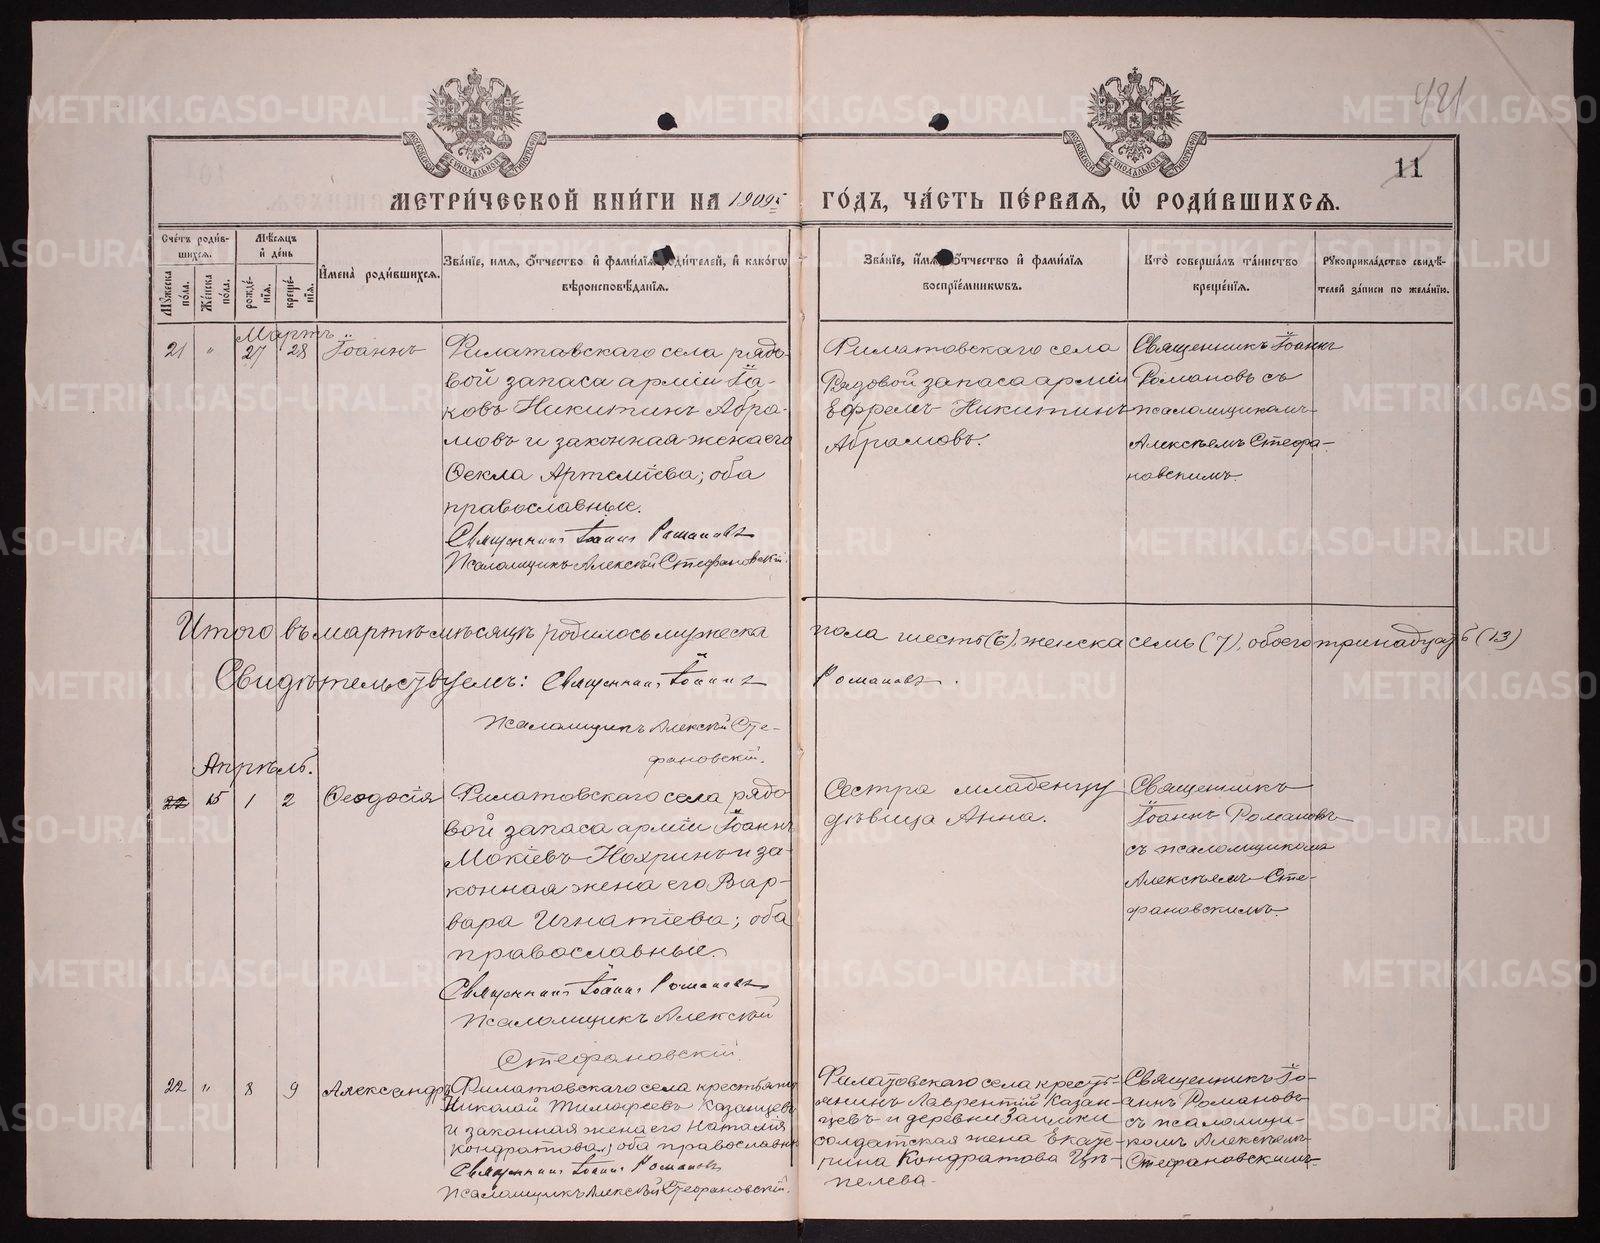 421
11
МЕТРИ́ЧЕСКОЙ КНИ́ГИ НА 1905 ГО́ДЪ, ЧА́СТЬ ПЕ́РВАЯ, Ѡ҆ РОДИ́ВШИХСЯ.
Сче́тъ роди́в-
шихся.
Му́жеска по́ла.
Же́нска по́ла.
Мѣ́сяцъ и҆ де́нь
рожде́-
нія.
креще́-
нія.
И҆мена̀ роди́вшихся.
Зва́нїе, и҆́мя, ѻ҆́тчество и҆ фами́лїя роди́телей, и҆ како́гѡ
вѣроисповѣ́данїя.
Зва́нїе, и҆́мя, ѻ҆́тчество и҆ фами́лїя
воспрїе́мниковъ.
Кто̀ соверша́лъ та́инство
креще́нїя.
Рꙋкоприкла́дство свидѣ́-
телей за́писи по жела́нїю.
Мартъ
21 " 27 28 Іоаннъ
Филатовскаго села рядо-
вой запаса арміи Іа-
ковъ Никитинъ Абра-
мовъ и законная жена его
Ѳекла Артеміева; оба
православные.
Священникъ Іоаннъ Романовъ
Псаломщикъ Алексѣй Стефановскій.
Филатовскаго села
Рядовой запаса арміи
Ефремъ Никитинъ
Абрамовъ.
Священникъ Іоаннъ
Романовъ съ
псаломщикомъ
Алексѣемъ Стефа-
новскимъ.
Итого въ мартѣ мѣсяцѣ родилось мужеска пола шесть (6), женска семь (7), обоего тринадцать (13)
Свидѣтельствуемъ: Священникъ Іоаннъ Романовъ.
Псаломщикъ Алексѣй Сте-
фановскій.
Апрѣль.
22 15 1 2 Ѳеодосія
Филатовскаго села рядо-
вой запаса арміи Іоаннъ
Мокіевъ Нохринъ и за-
конная жена его Вар-
вара Игнатіева; оба
православные.
Священникъ Іоаннъ Романовъ
Псаломщикъ Алексѣй
Стефановскій.
Сестра младенцу
дѣвица Анна.
Священникъ
Іоаннъ Романовъ
съ псаломщикомъ
Алексѣемъ Сте-
фановскимъ.
22 " 8 9 Александръ
Филатовскаго села крестьянинъ
Николай Тимофеевъ Казанцевъ
и законная жена его Наталія
Кондратова; оба православные
Священникъ Іоаннъ Романовъ
Псаломщикъ Алексѣй Стефановскій.
Филатовскаго села кресть-
янинъ Лаврентій Казан-
цевъ и деревни Заимки
солдатская жена Екате-
рина Кондратова Цѣ-
пелева.
Священникъ Іо-
аннъ Романовъ
съ псаломщи-
комъ Алексѣемъ
Стефановскимъ.
METRIKI.GASO-URAL.RU